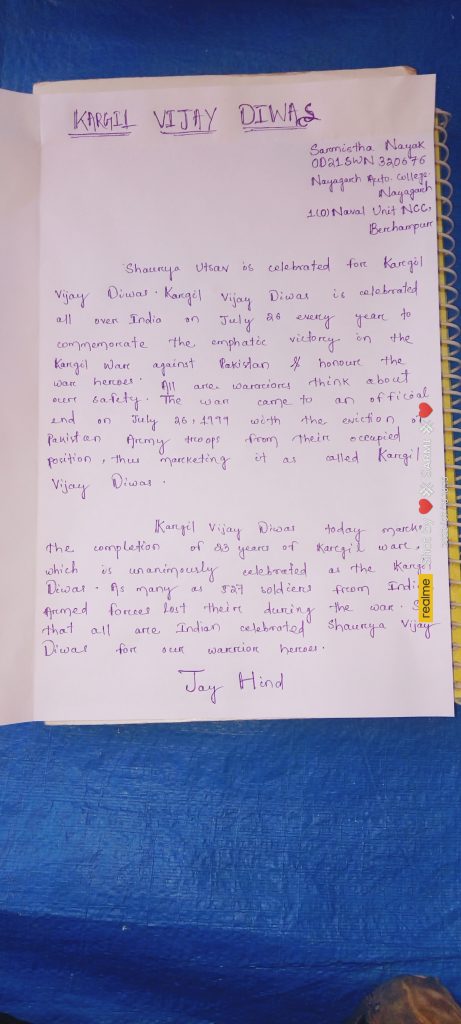 KARGIL VIJAY DIWAS
Sarmistha Nayak
OD21SWN320676
Nayagarh Auto. College.
Nayagarh
1(O) Naval Unit NCC,
Berhampur
Shaurya Utsav is celebrated for Kargil
Vijay Diwas. Kargil Vijay Diwas is celebrated
all over India on July 26 every year to
commemorate the emphatic victory in the
Kargil War against Pakistan & honour the
war heroes. All are warriors think about
our safety. The war came to an official
end on July 26, 1999 with the eviction of
Pakistan Army troops from their occupied
position, thus marketing it as called Kargil
Vijay Diwas.
Kargil Vijay Diwas today marks
the completion of 23 years of Kargil war,
which is unanimously celebrated as the Kargil
Diwas. As many as 527 soldiers from India
Armed forces lost their during the war. So
that all are Indian celebrated Shaurya Vijay
Diwas for our warrior heroes.
Jay Hind
realme Shot by